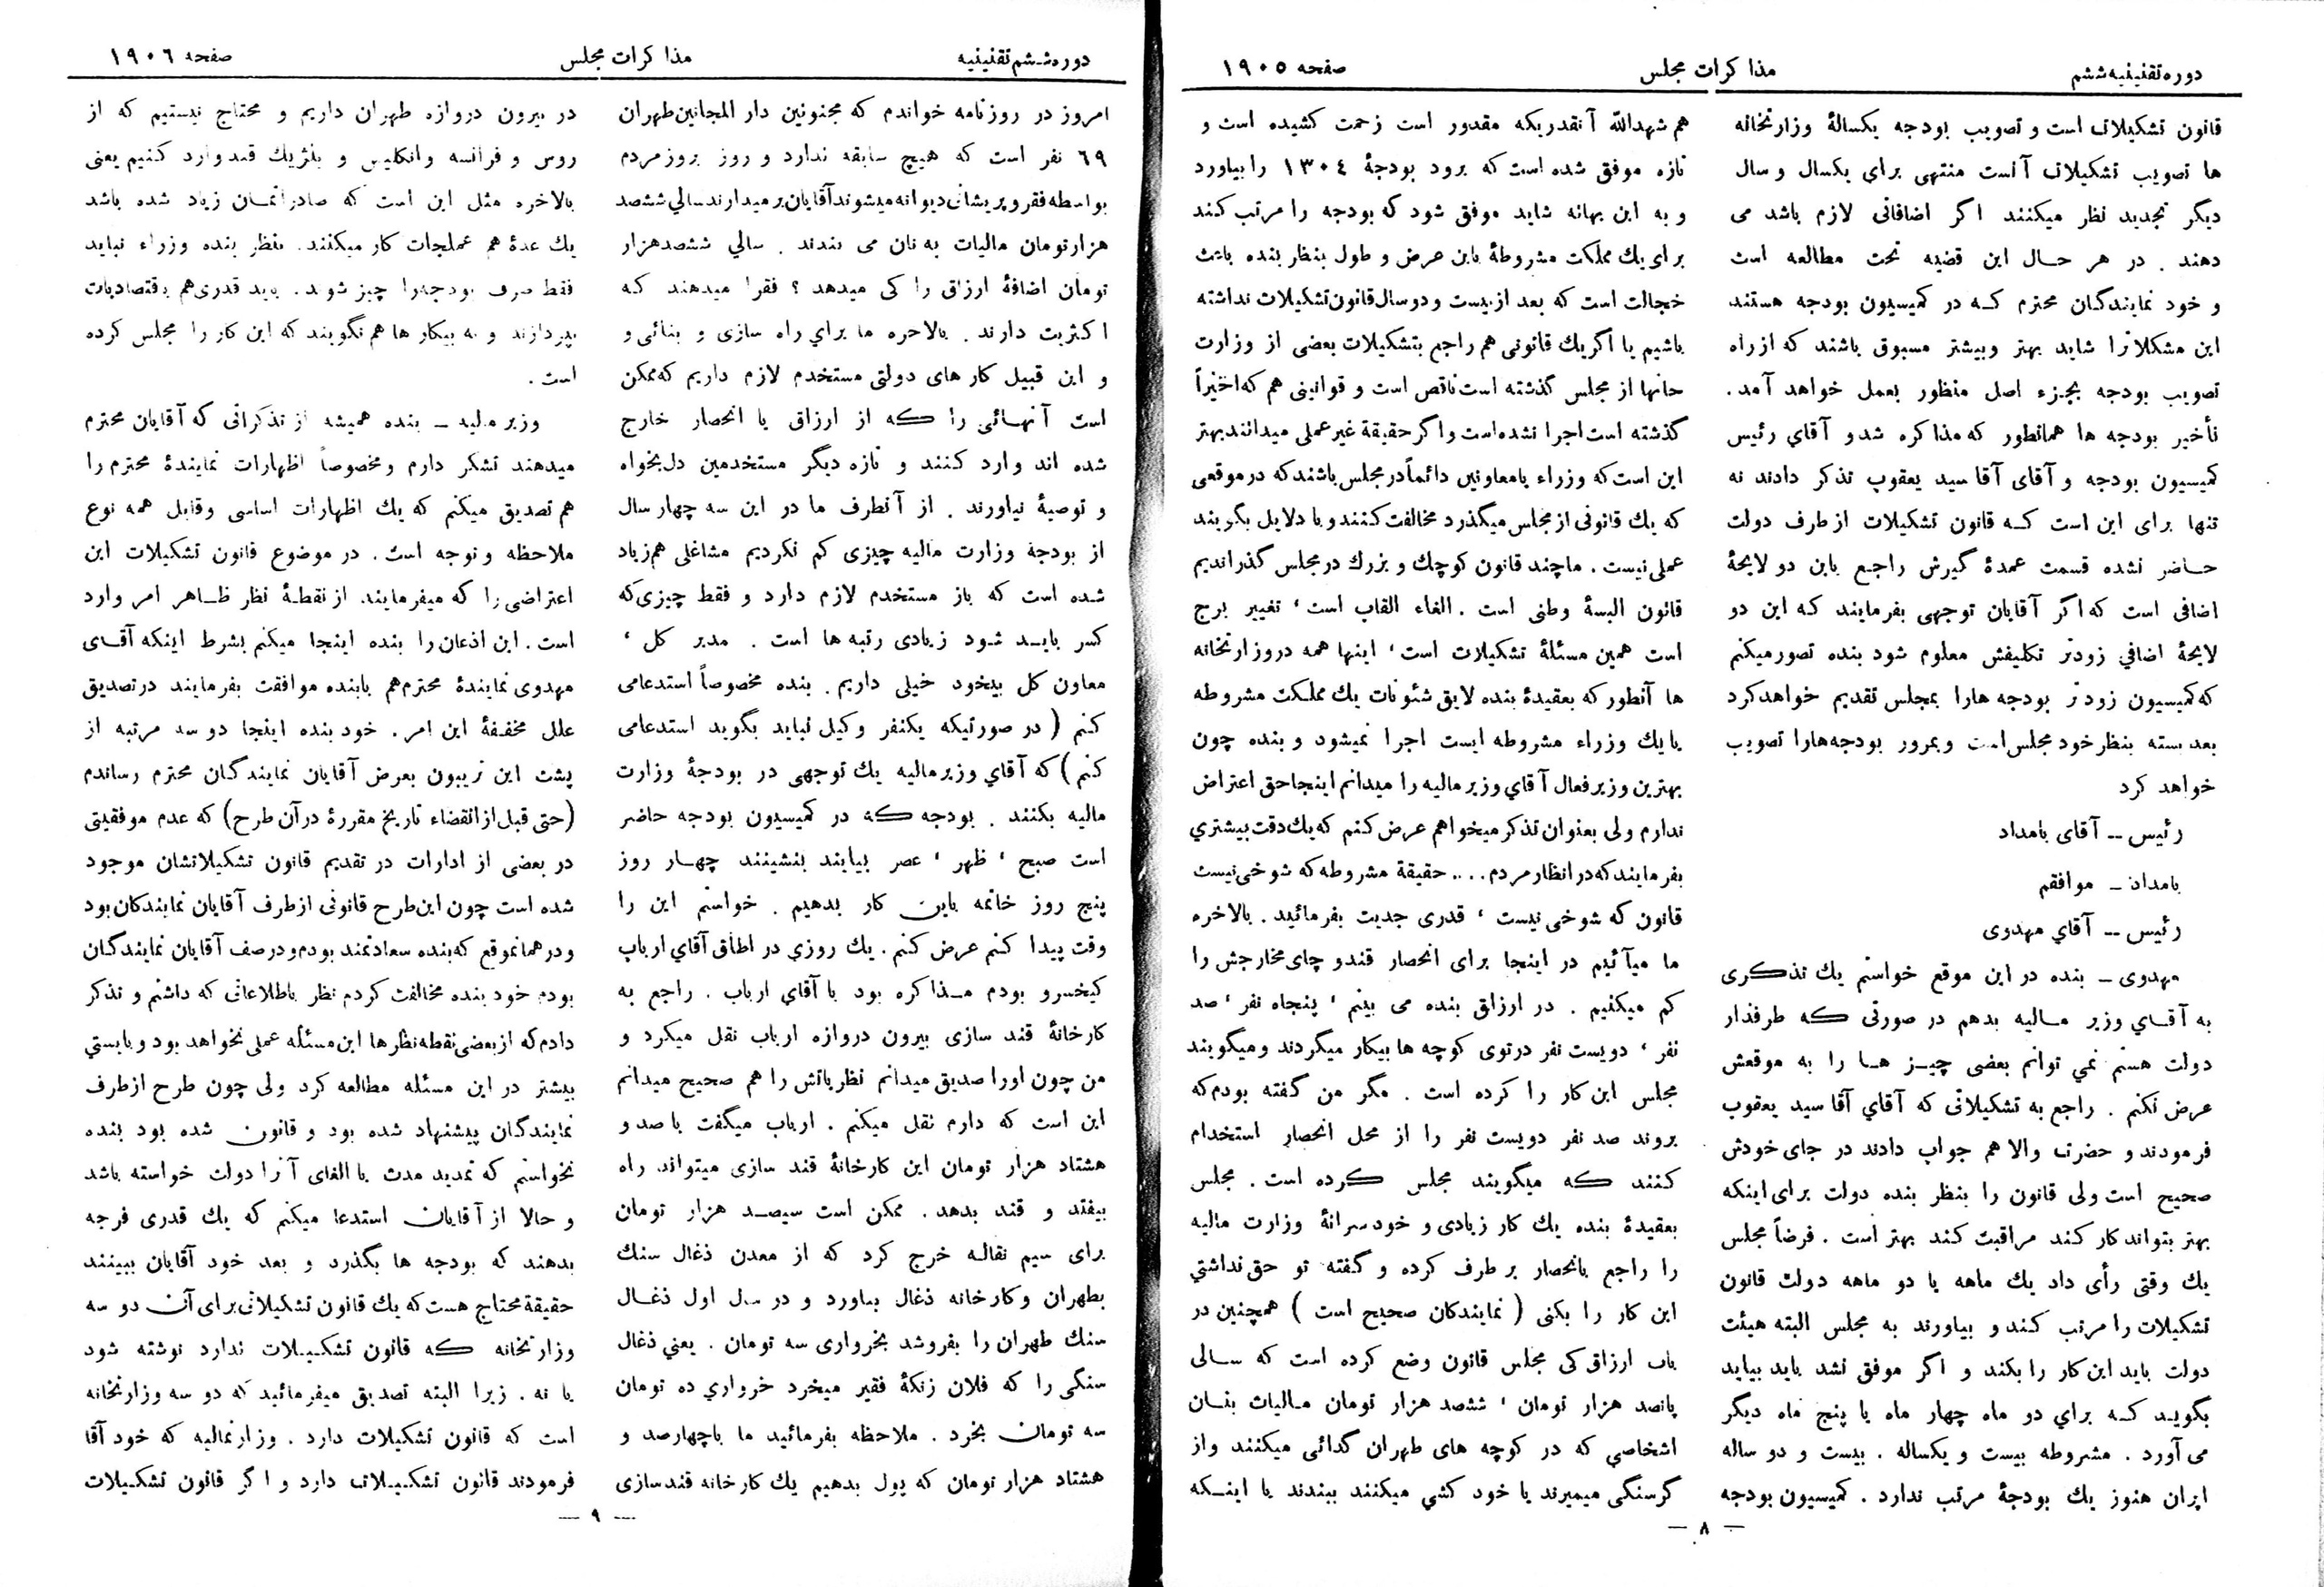 دوره تقنینیه ششم
مذاکرات مجلس
صفحه ۱۹۰۵
قانون تشکیلات است و تصویب بودجه یکسالهٔ وزارتخانه
ها تصویب تشکیلات آنست منتهی برای یکسال و سال
دیگر تجدید نظر میکنند اگر اضافاتی لازم باشد می
دهند . در هر حال این قضیه تحت مطالعه است
و خود نمایندگان محترم که در کمیسیون بودجه هستند
این مشکلاترا شاید بهتر وبیشتر مسبوق باشند که از راه
تصویب بودجه بجزء اصل منظور بعمل خواهد آمد .
تأخیر بودجه ها همانطور که مذاکره شد و آقاي رئیس
کمیسیون بودجه و آقای آقا سید یعقوب تذکر دادند نه
تنها برای این است که قانون تشکیلات از طرف دولت
حاضر نشده قسمت عمدهٔ گیرش راجع باین دو لایحهٔ
اضافی است که اگر آقایان توجهی بفرمایند که این دو
لایحهٔ اضافي زودتر تکلیفش معلوم شود بنده تصور میکنم
که کمیسیون زودتر بودجه هارا بمجلس تقدیم خواهد کرد
بعد بسته بنظر خود مجلس است و بمرور بودجه هارا تصویب
خواهد کرد
رئیس ــ آقای بامداد
بامداد ــ موافقم
رئیس ــ آقاي مهدوی
مهدوی ــ بنده در این موقع خواستم یك تذکری
به آقاي وزیر مالیه بدهم در صورتی که طرفدار
دولت هستم نمي توانم بعضی چیز ها را به موقعش
عرض نکنم . راجع به تشکیلاتی که آقاي آقا سید یعقوب
فرمودند و حضرت والا هم جواب دادند در جای خودش
صحیح است ولی قانون را بنظر بنده دولت برای اینکه
بهتر بتواند کار کند مراقبت کند بهتر است . فرضاً مجلس
یك وقتی رأی داد یك ماهه یا دو ماهه دولت قانون
تشکیلات را مرتب کند و بیاورند به مجلس البته هیئت
دولت باید این کار را بکند و اگر موفق نشد باید بیاید
بگوید که براي دو ماه چهار ماه یا پنج ماه دیگر
می آورد . مشروطه بیست و یکساله . بیست و دو ساله
ایران هنوز یك بودجهٔ مرتب ندارد . کمیسیون بودجه
هم شهدالله آنقدریکه مقدور است زحمت کشیده است و
تازه موفق شده است که برود بودجهٔ ۱۳۰٤ را بیاورد
و به این بهانه شاید موفق شود که بودجه را مرتب کند
برای یك مملکت مشروطهٔ باین عرض و طول بنظر بنده باعث
خجالت است که بعد از بیست و دو سال قانون تشکیلات نداشته
باشیم یا اگر یك قانونی هم راجع بتشکیلات بعضی از وزارت
خانها از مجلس گذشته است ناقص است و قوانینی هم که اخیراً
گذشته است اجرا نشده است و اگر حقیقة غیر عملی میدانند بهتر
این است که وزراء یا معاونین دائماً در مجلس باشند که در موقعی
که یك قانونی از مجلس میگذرد مخالفت کنند و با دلایل بگویند
عملی نیست . ما چند قانون کوچك و بزرك در مجلس گذراندیم
قانون البسهٔ وطنی است . الغاء القاب است ، تغییر برج
است همین مسئلهٔ تشکیلات است ، اینها همه در وزارتخانه
ها آنطور که بعقیدهٔ بنده لایق شئونات یك مملکت مشروطه
یا یك وزراء مشروطه ایست اجرا نمیشود و بنده چون
بهترین وزیر فعال آقاي وزیر مالیه را میدانم اینجا حق اعتراض
ندارم ولی بعنوان تذکر میخواهم عرض کنم که یك دقت بیشتري
بفرمایند که در انظار مردم .... حقیقة مشروطه که شوخی نیست
قانون که شوخی نیست ، قدری جدیت بفرمائید . بالاخره
ما میآئیم در اینجا برای انحصار قند و چای مخارجش را
کم میکنیم . در ارزاق بنده می بینم ، پنجاه نفر ، صد
نفر ، دویست نفر در توی کوچه ها بیکار میگردند و میگویند
مجلس این کار را کرده است . مگر من گفته بودم که
بروند صد نفر دویست نفر را از محل انحصار استخدام
کنند که میگویند مجلس کرده است . مجلس
بعقیدهٔ بنده یك کار زیادی و خودسرانهٔ وزارت مالیه
را راجع بانحصار بر طرف کرده و گفته تو حق نداشتي
این کار را بکنی ( نمایندکان صحیح است ) همچنین در
باب ارزاق کی مجلس قانون وضع کرده است که سالی
پانصد هزار تومان ، ششصد هزار تومان مالیات بنان
اشخاصي که در کوچه های طهران گدائی میکنند و از
گرسنگی میمیرند یا خود کشي میکنند ببندند یا اینکه
— ۸ —
دوره ششم تقنینیه
مذاکرات مجلس
صفحه ۱۹۰٦
امروز در روزنامه خواندم که مجنونین دار المجانین طهران
٦۹ نفر است که هیچ سابقه ندارد و روز بروز مردم
بواسطه فقر و پریشانی دیوانه میشوند آقایان بر میدارند سالي ششصد
هزار تومان مالیات به نان می بندند . سالي ششصد هزار
تومان اضافهٔ ارزاق را کی میدهد ؟ فقرا میدهند که
اکثریت دارند . بالاخره ما براي راه سازی و بنائی و
و این قبیل کار های دولتی مستخدم لازم داریم که ممکن
است آنهائی را که از ارزاق یا انحصار خارج
شده اند وارد کنند و تازه دیگر مستخدمین دل بخواه
و توصیهٔ نیاورند . از آنطرف ما در این سه چهار سال
از بودجهٔ وزارت مالیه چیزی کم نکردیم مشاغلی هم زیاد
شده است که باز مستخدم لازم دارد و فقط چیزی که
کسر باید شود زیادی رتبه ها است . مدیر کل ،
معاون کل بیخود خیلی داریم . بنده مخصوصاً استدعا می
کنم ( در صورتیکه یکنفر وکیل نباید بگوید استدعا می
کنم ) که آقاي وزیر مالیه یك توجهی در بودجهٔ وزارت
مالیه بکنند . بودجه که در کمیسیون بودجه حاضر
است صبح ، ظهر ، عصر بیایند بنشینند چهار روز
پنج روز خاتمه باین کار بدهیم . خواستم این را
وقت پیدا کنم عرض کنم . یك روزي در اطاق آقاي ارباب
کیخسرو بودم مذاکره بود با آقاي ارباب . راجع به
کارخانهٔ قند سازی بیرون دروازه ارباب نقل میکرد و
من چون اورا صدیق میدانم نظریاتش را هم صحیح میدانم
این است که دارم نقل میکنم . ارباب میگفت با صد و
هشتاد هزار تومان این کارخانهٔ قند سازی میتواند راه
بیفتد و قند بدهد . ممکن است سیصد هزار تومان
برای سیم نقاله خرج کرد که از معدن ذغال سنك
بطهران و کارخانه ذغال بیاورد و در سال اول ذغال
سنك طهران را بفروشد بخرواری سه تومان . یعني ذغال
سنگی را که فلان زنکهٔ فقیر میخرد خرواري ده تومان
سه تومان بخرد . ملاحظه بفرمائید ما با چهارصد و
هشتاد هزار تومان که پول بدهیم یك کارخانه قند سازی
در بیرون دروازه طهران داریم و محتاج نیستیم که از
روس و فرانسه و انگلیس و بلژیك قند وارد کنیم یعنی
بالاخره مثل این است که صادراتمان زیاد شده باشد
یك عدهٔ هم عملجات کار میکنند . بنظر بنده وزراء نباید
فقط صرف بودجه را چیز شوند . باید قدری هم باقتصادیات
بپردازند و به بیکار ها هم نگویند که این کار را مجلس کرده
است .
وزیر مالیه ــ بنده همیشه از تذکراتی که آقایان محترم
میدهند تشکر دارم و مخصوصاً اظهارات نمایندهٔ محترم را
هم تصدیق میکنم که یك اظهارات اساسی و قابل همه نوع
ملاحظه و توجه است . در موضوع قانون تشکیلات این
اعتراضی را که میفرمایند از نقطهٔ نظر ظاهر امر وارد
است . این اذعان را بنده اینجا میکنم بشرط اینکه آقای
مهدوی نمایندهٔ محترم هم با بنده موافقت بفرمایند در تصدیق
علل مخففهٔ این امر . خود بنده اینجا دو سه مرتبه از
پشت این تریبون بعرض آقایان نمایندگان محترم رساندم
(حتی قبل از انقضاء تاریخ مقررهٔ در آن طرح) که عدم موفقیتی
در بعضی از ادارات در تقدیم قانون تشکیلاتشان موجود
شده است چون این طرح قانونی از طرف آقایان نمایندکان بود
و در همانموقع که بنده سعادتمند بودم و در صف آقایان نمایندگان
بودم خود بنده مخالفت کردم نظر باطلاعاتی که داشتم و تذکر
دادم که از بعضی نقطه نظر ها این مسئله عملی نخواهد بود و بایستي
بیشتر در این مسئله مطالعه کرد ولی چون طرح از طرف
نمایندگان پیشنهاد شده بود و قانون شده بود بنده
نخواستم که تمدید مدت یا الغای آنرا دولت خواسته باشد
و حالا از آقایان استدعا میکنم که یك قدری فرجه
بدهند که بودجه ها بگذرد و بعد خود آقایان ببینند
حقیقة محتاج هست که یك قانون تشکیلاتی برای آن دو سه
وزارتخانه که قانون تشکیلات ندارد نوشته شود
یا نه . زیرا البته تصدیق میفرمائید که دو سه وزارتخانه
است که قانون تشکیلات دارد . وزارتمالیه که خود آقا
فرمودند قانون تشکیلات دارد و اگر قانون تشکیلات
— ۹ —